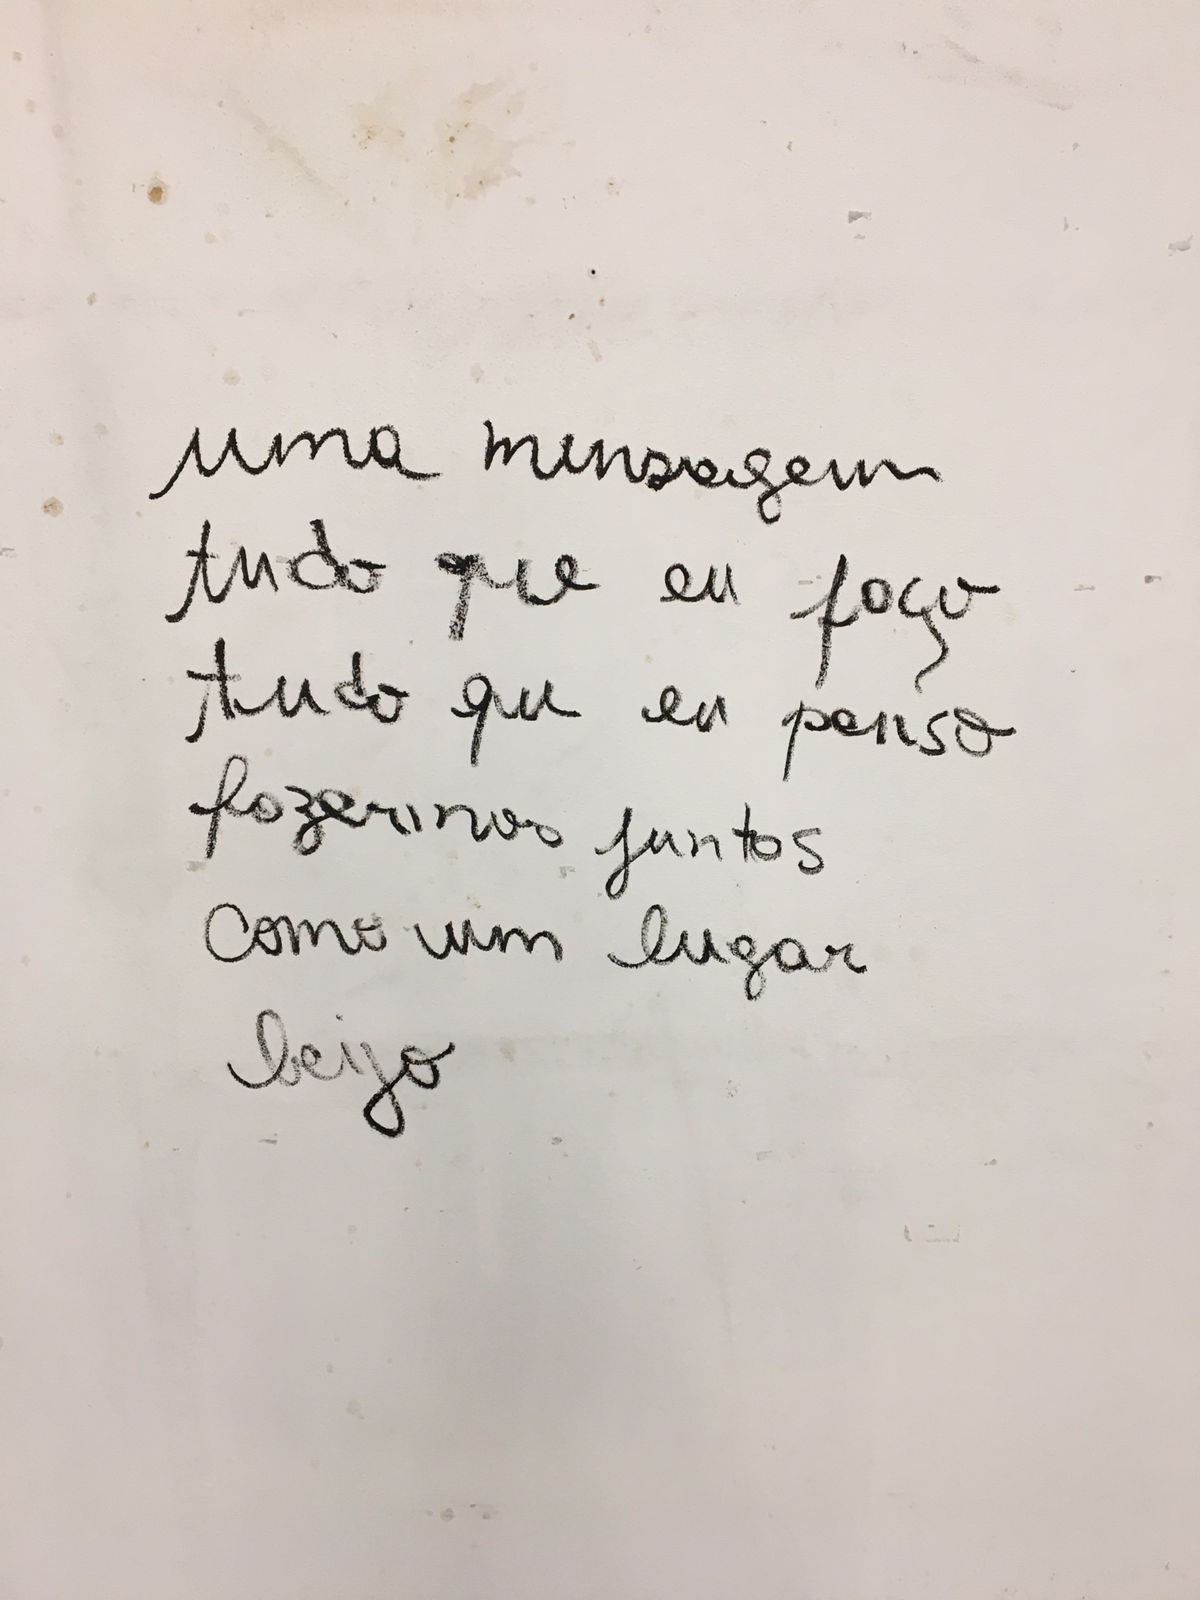 uma mensagem
tudo que eu faço
tudo que eu penso
fazermos juntos
como um lugar
beijo